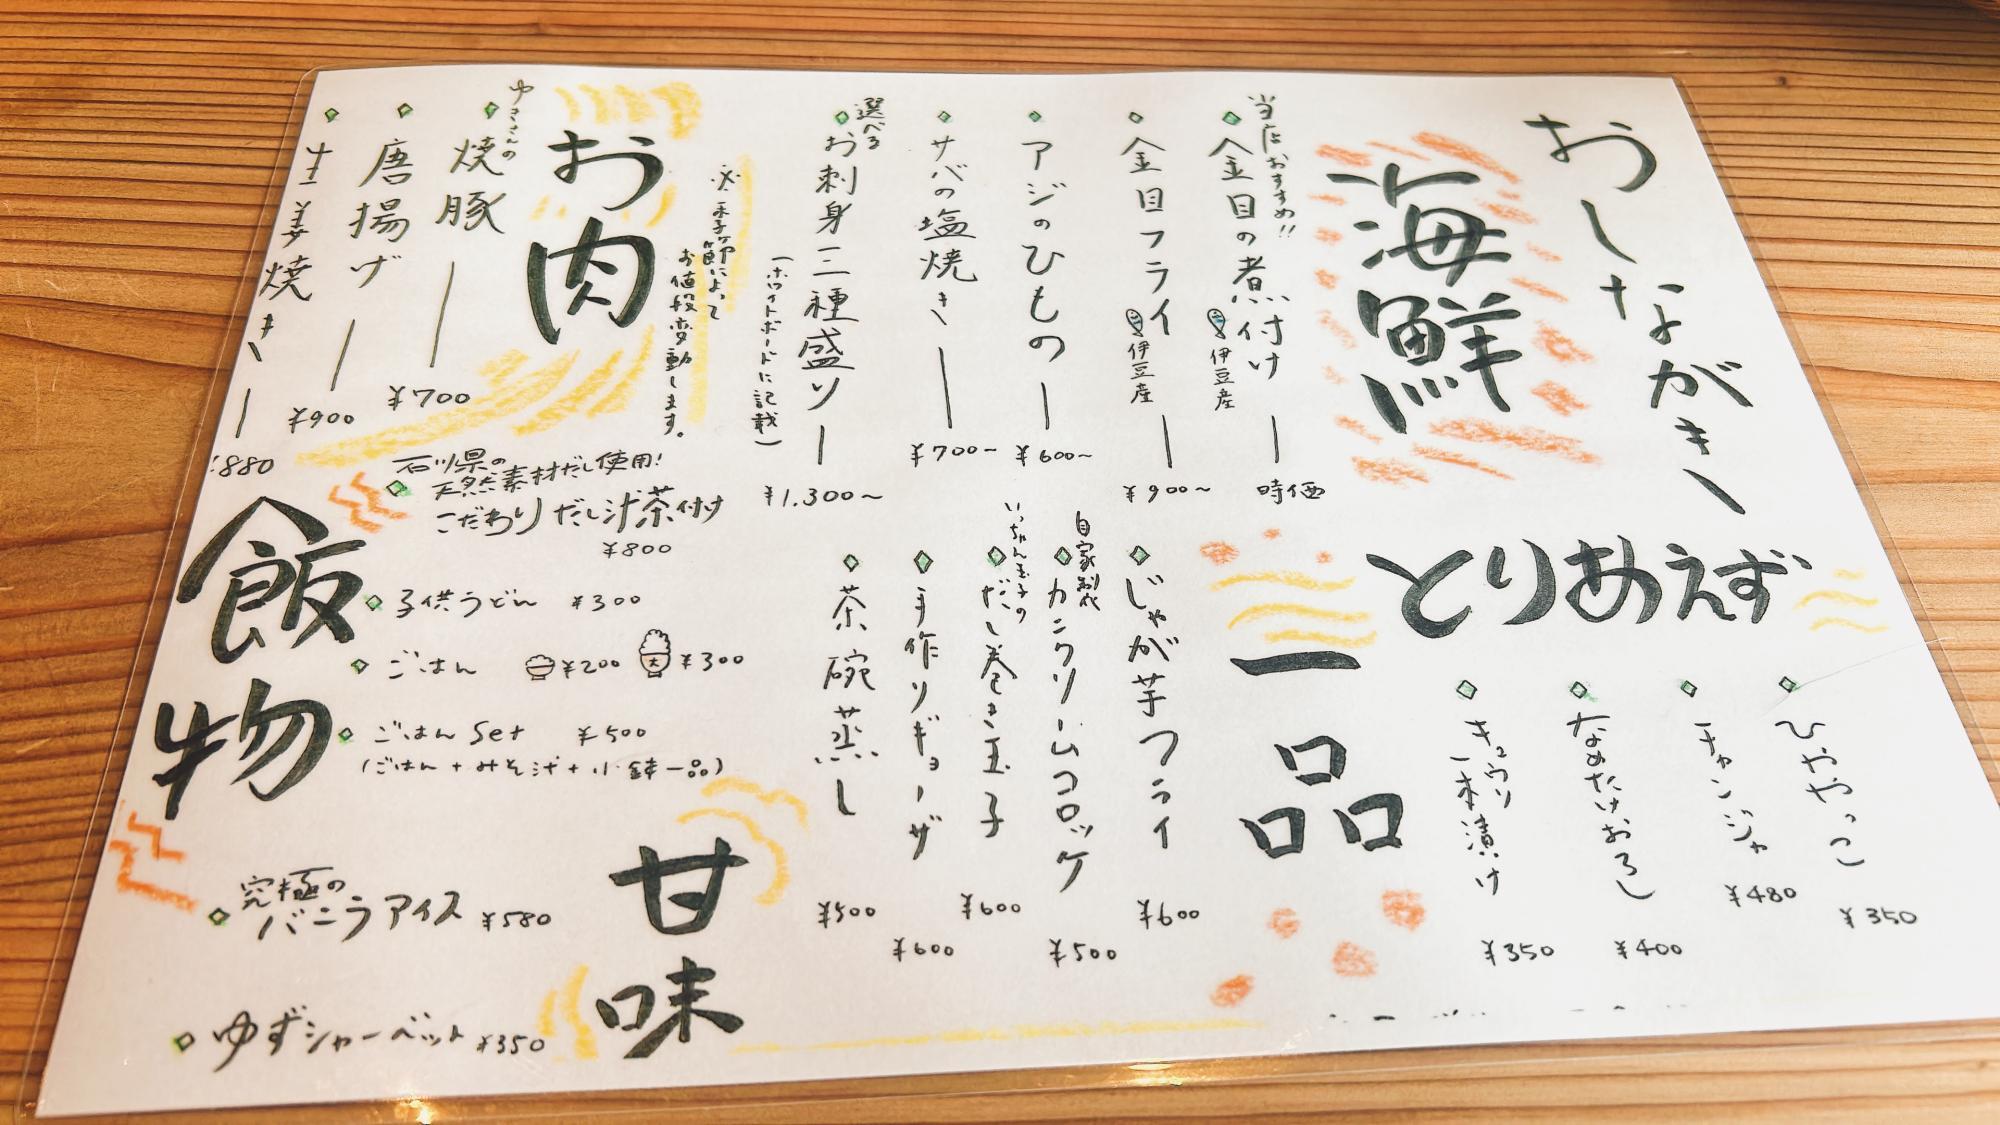 おしながき
海鮮
当店おすすめ!!
金目の煮付け 伊豆産 時価
金目フライ 伊豆産 ¥900~
アジのひもの ¥600~
サバの塩焼き ¥700~
選べる
お刺身三種盛り ¥1,300~
(ホワイトボードに記載)
※季節によって
お値段変動します。
お肉
ゆきさんの
焼豚 ¥700
唐揚げ ¥900
生姜焼き 880
とりあえず
ひややっこ ¥350
チャンジャ ¥480
なめたけおろし ¥400
キュウリ一本漬け ¥350
一品
じゃが芋フライ ¥600
自家製
カニクリームコロッケ ¥500
いっちゃん玉子の
だし巻き玉子 ¥600
手作りギョーザ ¥600
茶碗蒸し ¥500
飯物
石川県の
天然素材だし使用!
こだわりだし汁茶付け
¥800
子供うどん ¥300
ごはん ¥200 大 ¥300
ごはんset ¥500
(ごはん+みそ汁+小鉢一品)
甘味
究極の
バニラアイス ¥580
ゆずシャーベット ¥350